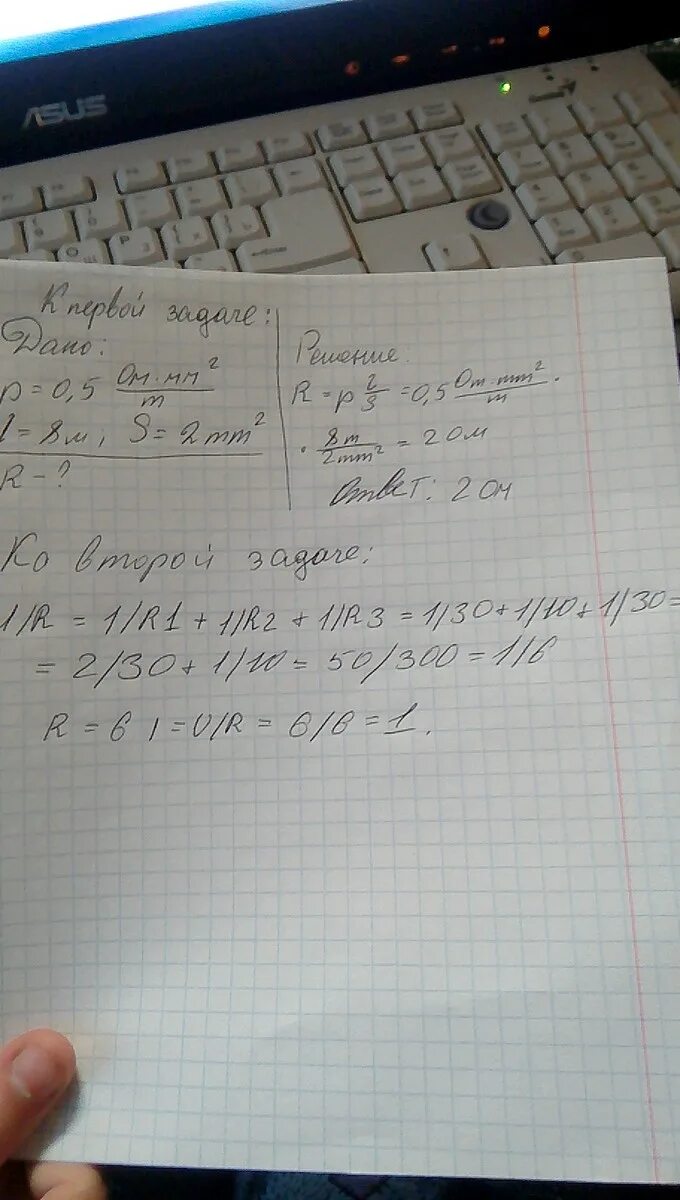 ASUS
К первой задаче:
Дано:
ρ = 0,5 Ом·мм²/m
l = 8м; S = 2mm²
R - ?
Решение.
R = ρ l/S = 0,5 Om·mm²/m ·
· 8m/2mm² = 2 Ом
Ответ: 2 Ом
Ко второй задаче:
1/R = 1/R1 + 1/R2 + 1/R3 = 1/30 + 1/10 + 1/30 =
= 2/30 + 1/10 = 50/300 = 1/6
R = 6 I = U/R = 6/6 = 1.